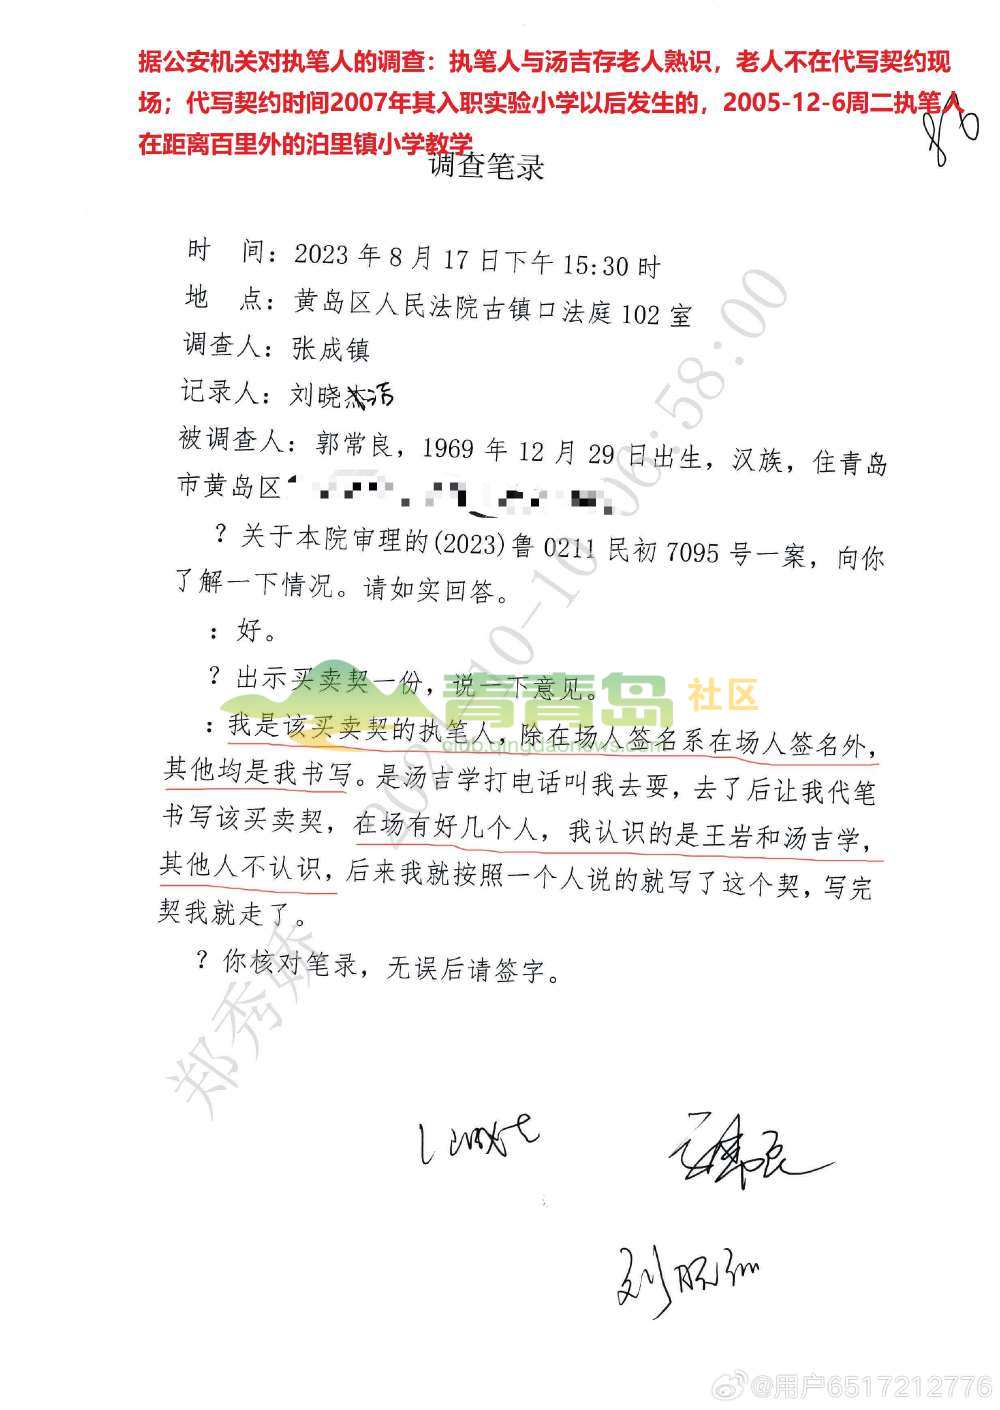 据公安机关对执笔人的调查：执笔人与汤吉存老人熟识，老人不在代写契约现
场；代写契约时间2007年其入职实验小学以后发生的，2005-12-6周二执笔人
在距离百里外的泊里镇小学教学
86
调查笔录
时 间：2023年8月17日下午15:30时
地 点：黄岛区人民法院古镇口法庭102室
调查人：张成镇
记录人：刘晓
被调查人：郭常良，1969年12月29日出生，汉族，住青岛
市黄岛区
？关于本院审理的(2023)鲁0211民初7095号一案，向你
了解一下情况。请如实回答。
：好。
？出示买卖契一份，说一下意见。
青青岛 社区
club.qingdaonews.com
：我是该买卖契的执笔人，除在场人签名系在场人签名外，
其他均是我书写。是汤吉学打电话叫我去耍，去了后让我代笔
书写该买卖契，在场有好几个人，我认识的是王岩和汤吉学，
其他人不认识，后来我就按照一个人说的就写了这个契，写完
契我就走了。
？你核对笔录，无误后请签字。
郑秀娇
06:58:00
@用户6517212776